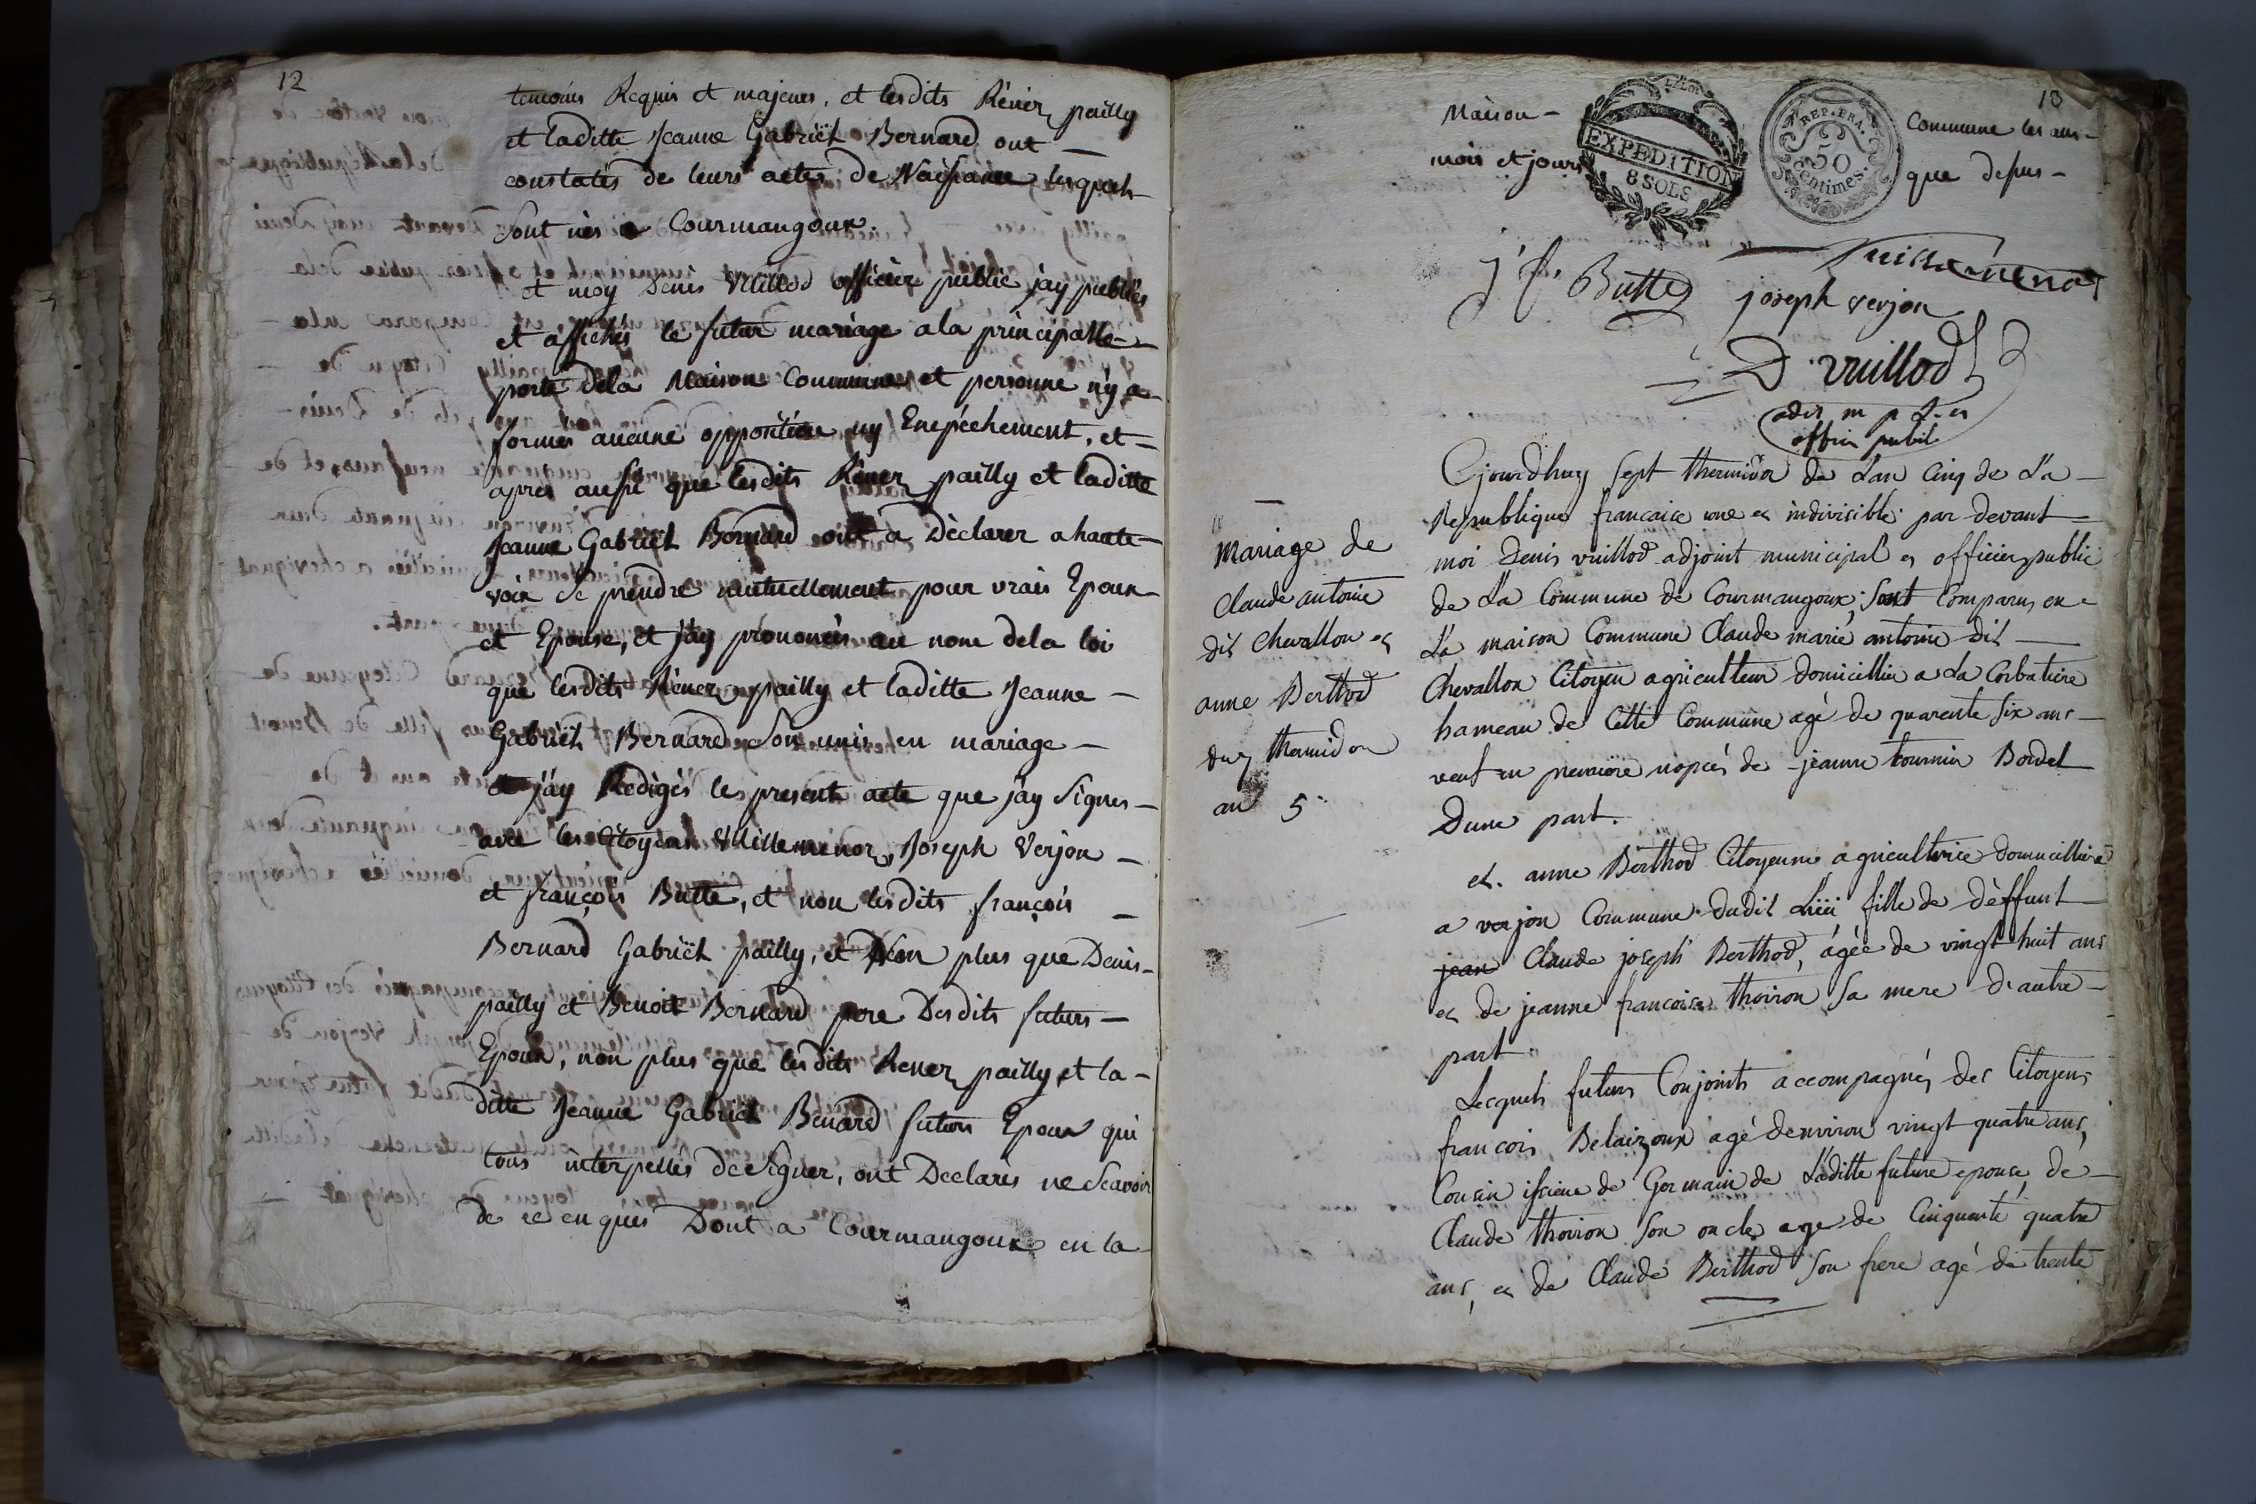 12
temoins Requis et majeurs, et lesdits Réner pailly
et laditte Jeanne Gabriël Bernard ont —
constatés de leurs actes de Naissance lesquels
sont nés a Courmangoux.
et moy Denis Vuillod officier public jay publiés
et affichés le futur mariage a la principalle —
porte dela Maison Commune et personne n'y a
formés aucune opposition ny Enpéchement, et —
apres aussi que lesdits Réner pailly et laditte
Jeanne Gabriël Bernard ont a Déclarer a haute —
voix se prendre mutuellement pour vrais Epoux
et Epouse, et j'ay prononcés au nom dela loi
que lesdits Réner pailly et laditte Jeanne —
Gabriël Bernard son unis en mariage —
et j'ay Redigés le present acte que jay Signes —
avec les Citoyens Vuillemenot, Joseph Verjon —
et françois Butte, et non lesdits françois —
Bernard Gabriël pailly, et Non plus que Denis —
pailly et Benoit Bernard pere Desdits futurs —
Epoux, non plus que lesdits Rener pailly et la —
ditte Jeanne Gabriël Benard futurs Epoux qui
tous interpellés de signer, ont Declarés ne Scavoir
de ce enquis Dont a Courmangoux en la
13
Maison — Commune les ans —
mois et jours que desus —
EXPEDITION
8 SOLS
REP. FRA.
50
Centimes.
j f Butte
joseph verjon
D vuillod
officier public
Mariage de
Claude antoine
dit Chevallon et
anne Berthod
du 7 thermidor
an 5
Cjourdhuy sept thermidor de L'an Cinq de La —
Republique francaice une et indivicible par devant —
moi Denis vuillod adjoint municipal et officier public
de La Commune de Courmangoux, sont Comparus en
La maison Commune Claude marie antoine dit —
Chevallon Citoyen agriculteur domicillié a La Corbatiere
hameau de Cette Commune agé de quarente six ans —
veuf en premiere nopces de jeanne tournier Bordet
Dune part.
et. anne Berthod Citoyenne agricultrice domicilliére
a verjon Commune dudit Liëü fille de déffunt
jean Claude joseph Berthod, ágéé de vingt huit ans
et de jeanne francoise thoiron sa mere d'autre —
part.
Lesquels futurs Conjoints accompagnés des Citoyens
francois Delaizoux agé denviron vingt quatre ans,
Cousin issieue de Germain de Laditte future epouse, de —
Claude thoiron son oncle age de Cinquente quatre
ans, et de Claude Berthod son frere agé de trente